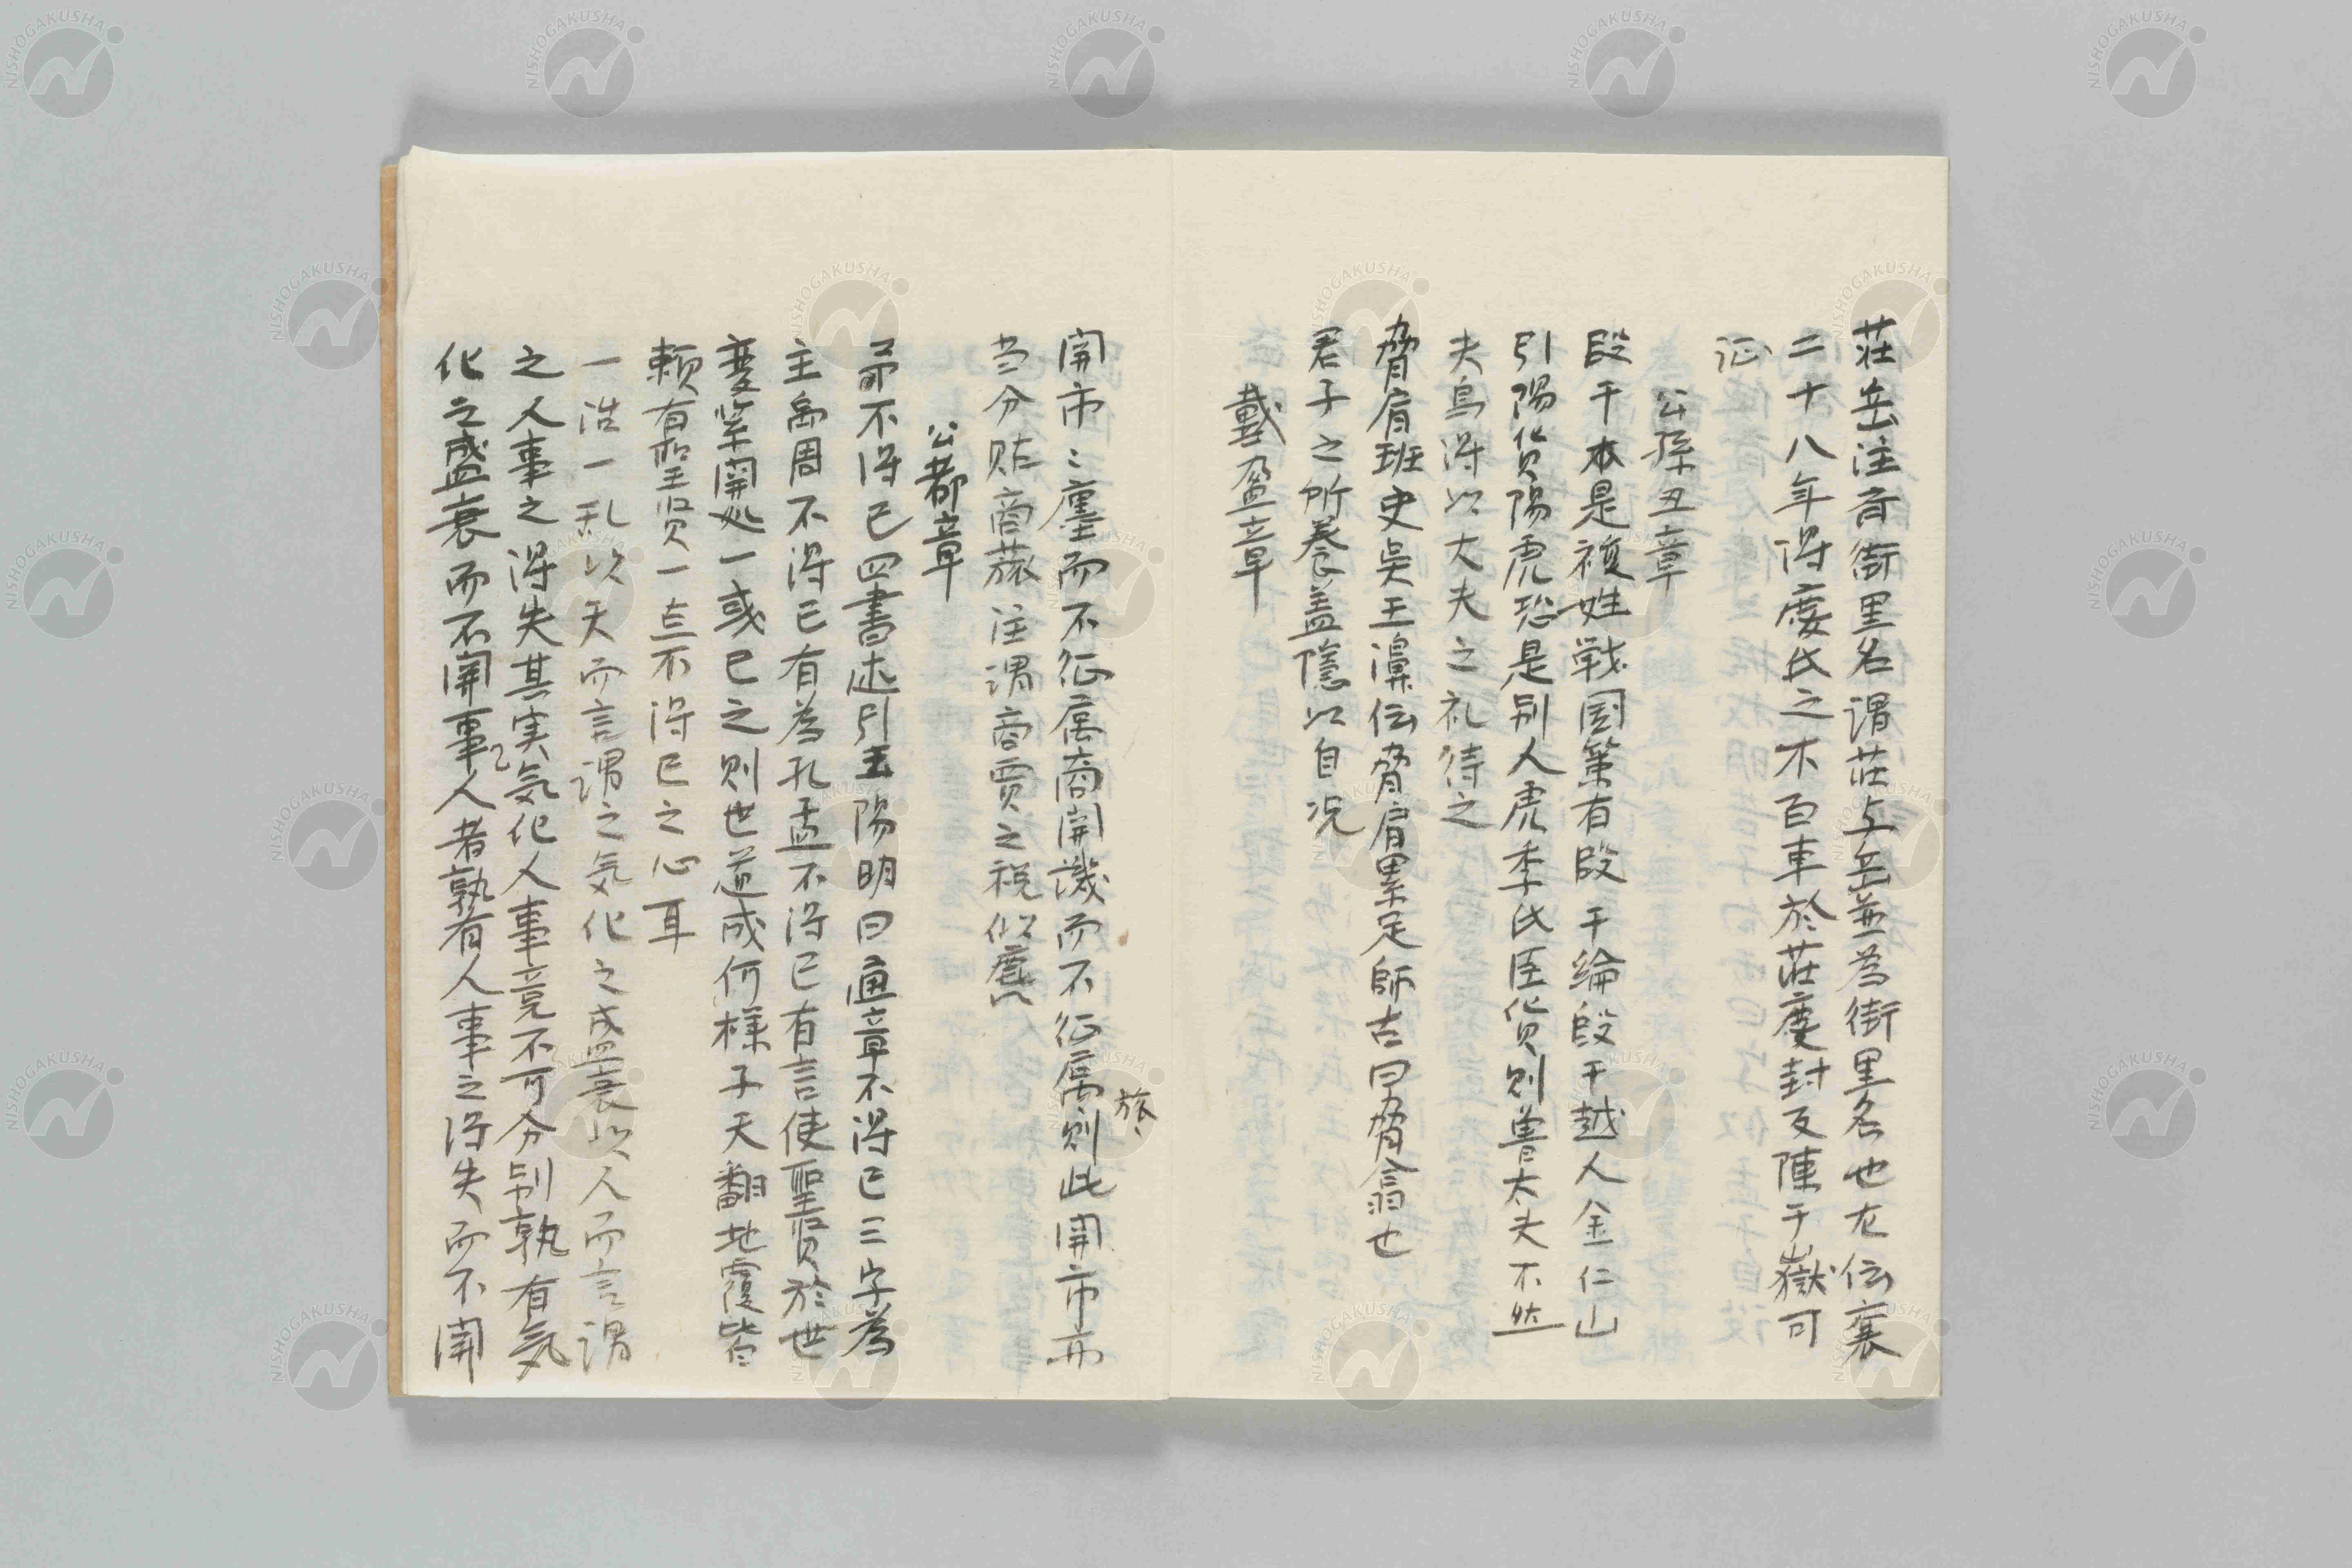 荘岳注斉街里名謂荘与岳並為街里名也左伝襄
二十八年得慶氏之木百車於荘慶封反陳于嶽可
证
公孫丑章
段干本是複姓戦国策有段干綸段干越人金仁山
引陽貨陽虎恐是别人虎季氏臣貨則魯大夫不然
夫烏得以大夫之礼待之
脅肩班史呉王濞伝脅肩累足師古曰脅翕也
君子之所養盖隠以自况
戴盈章
関市〻廛而不征属商関譏而不征属旅則此関市而
当分貼商旅注謂商賈之税似
公都章
予不得已四書述引王陽明曰通章不得已三字為
主禹周不得已有為孔孟不得已有言使聖贤於世
変緊関処一或已之則世道成何様子天翻地覆皆
頼有聖贤一点不得已之心耳
一治一乱以天而言謂之気化之盛衰以人而言謂
之人事之得失其実気化人事竟不可分别孰有気
化之盛衰而不関乎人事者孰有人事之得失而不関
NISHOGAKUSHA